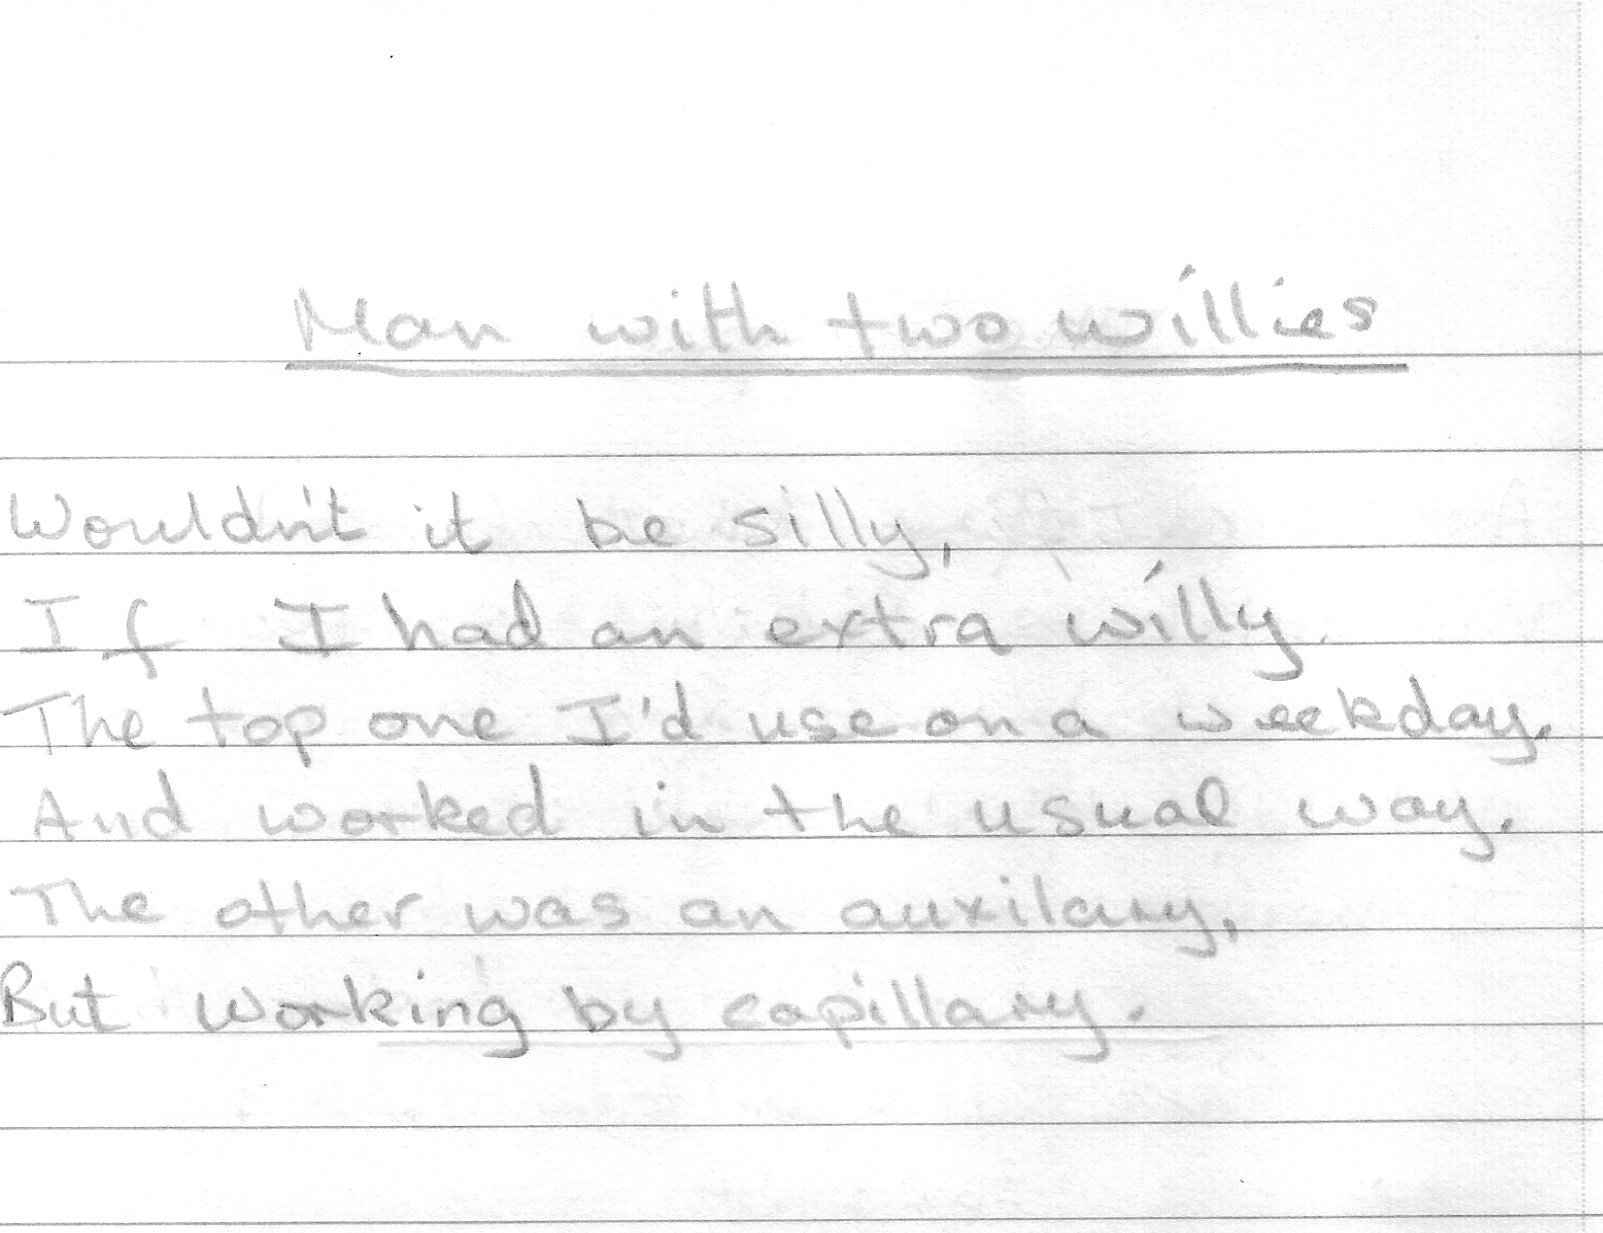 Man with two willies
Wouldn't it be silly,
If I had an extra willy.
The top one I'd use on a weekday.
And worked in the usual way.
The other was an auxilary,
But working by capillary.